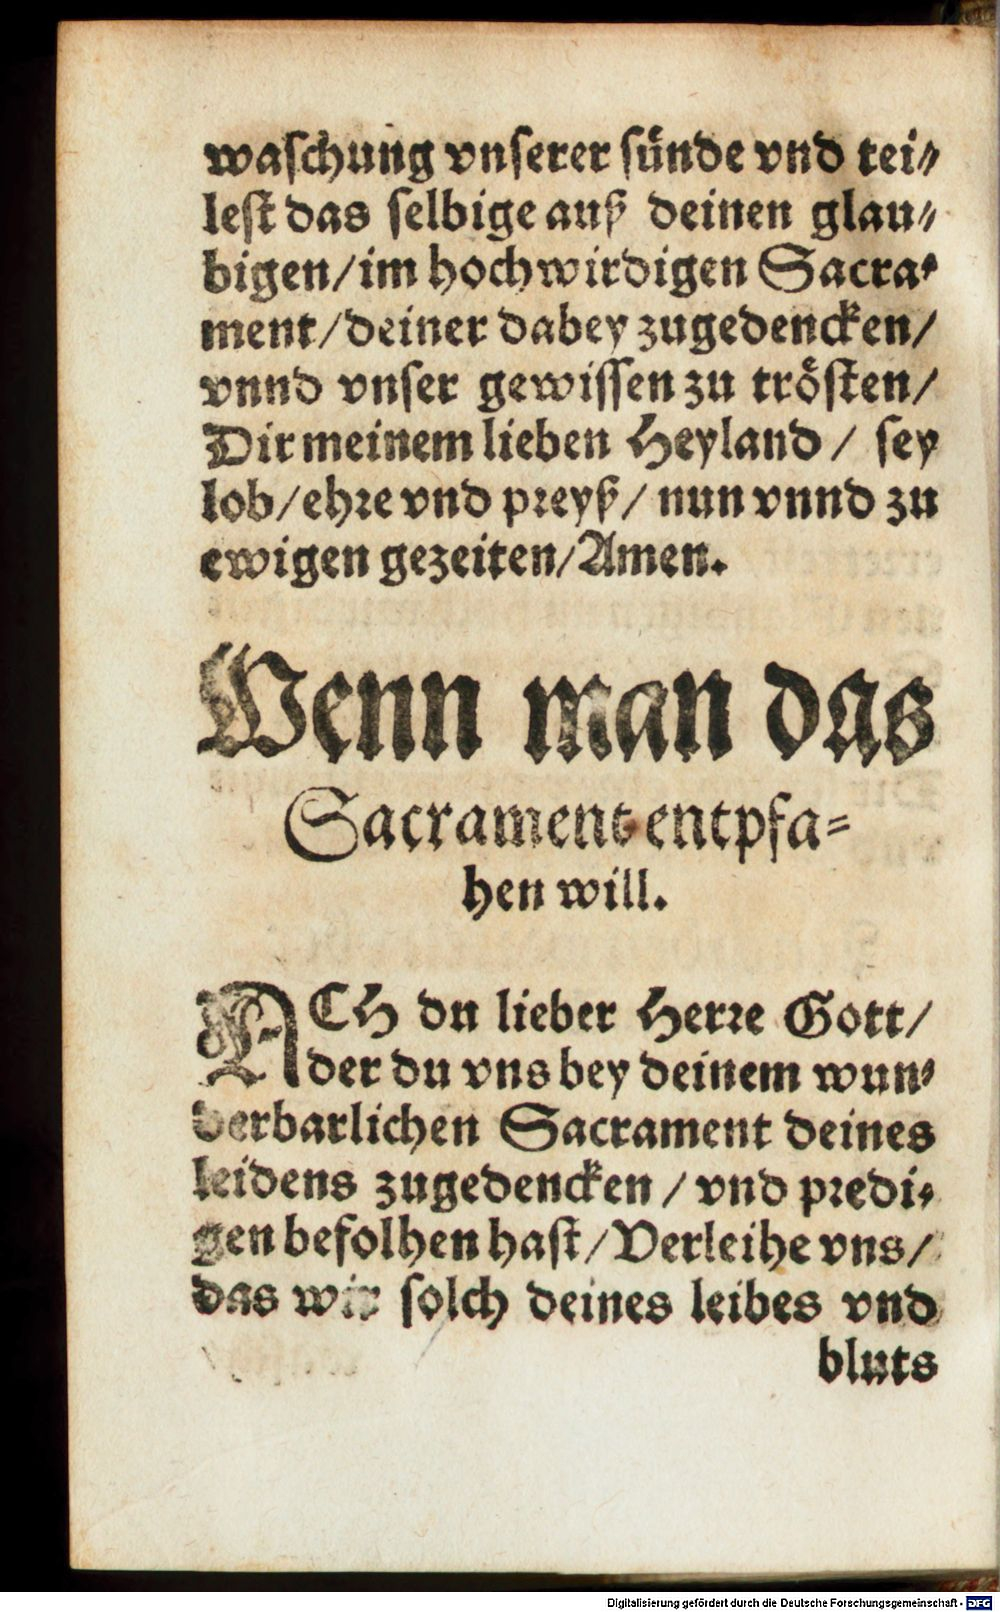 waschung vnserer sünde vnd tei⸗
lest das selbige auß deinen glau⸗
bigen/im hochwirdigen Sacra⸗
ment/deiner dabey zugedencken/
vnnd vnser gewissen zu trösten/
Dir meinem lieben Heyland / sey
lob/ehre vnd preyß/ nun vnnd zu
ewigen gezeiten/Amen.
Wenn man das
Sacrament entpfa⸗
hen will.
ACH du lieber Herre Gott/
der du vns bey deinem wun⸗
derbarlichen Sacrament deines
leidens zugedencken / vnd predi⸗
gen befolhen hast/Verleihe vns/
das wir solch deines leibes vnd
bluts
Digitalisierung gefördert durch die Deutsche Forschungsgemeinschaft - DFG